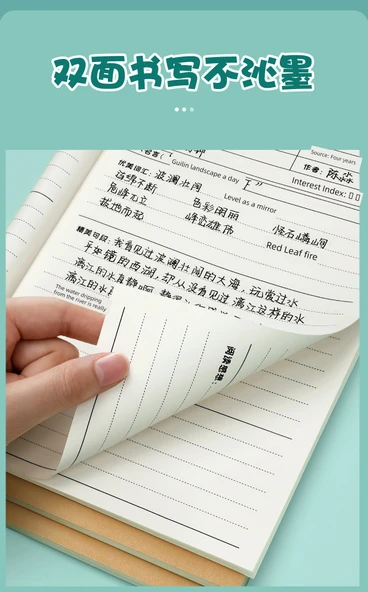 双面书写不沁墨
Source: Four years
Guilin landscape a day
作者:
Interest Index:
优美词汇: 波澜壮阔
Level as a mirror
连绵不断
色彩明丽
怪石嶙峋
危峰兀立
Red Leaf fire
拔地而起
峰峦雄伟
精美句段: 我看见过波澜壮阔的大海, 玩赏过水
平如镜的西湖, 却从没看见过漓江这样的水
The water dripping
from the river is really
漓江的水真静啊,
漓江的水
阅读感想: